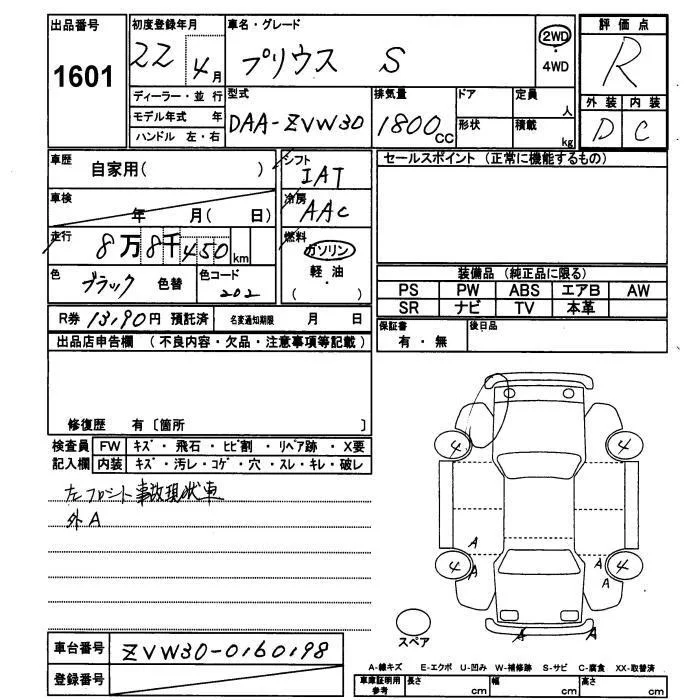 出品番号 初度登録年月 車名・グレード 評価点
1601 22 年 4月 プリウス S 2WD R
4WD
ディーラー・並行 型式 排気量 ドア 定員 外装 内装
モデル年式 年 DAA-ZVW30 1800CC 人 D C
ハンドル 左・右 形状 積載 kg
車歴 自家用( ) シフト IAT セールスポイント (正常に機能するもの)
車検 年 月( 日) 冷房 AAC
走行 8万8千450km 燃料 ガソリン
軽・油
( )
色 ブラック 色替 色コード 202
装備品 (純正品に限る)
PS PW ABS エアB AW
SR ナビ TV 本革
R券 13,190円 預託済 名変通知期限 月 日
保証書 有・無 後日品
出品店申告欄 (不良内容・欠品・注意事項等記載)
修復歴 有〔箇所 〕
検査員 FW キズ・飛石・ヒビ割・リペア跡・X要
記入欄 内装 キズ・汚レ・コゲ・穴・スレ・キレ・破レ
左フロント事故現状車
外A
4 4
A
4 A A 4
A
スペア
A A
車台番号 ZVW30-0160198
登録番号
A-線キズ E-エクボ U-凹み W-補修跡 S-サビ C-腐食 XX-取替済
車庫証明用参考 長さ cm 幅 cm 高さ cm